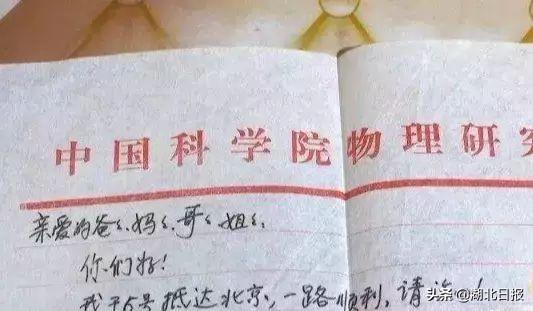 中国科学院物理研
亲爱的爸爸、妈妈、哥哥、姐姐:
你们好!
我于5号抵达北京,一路顺利,请
头条 @湖北日报